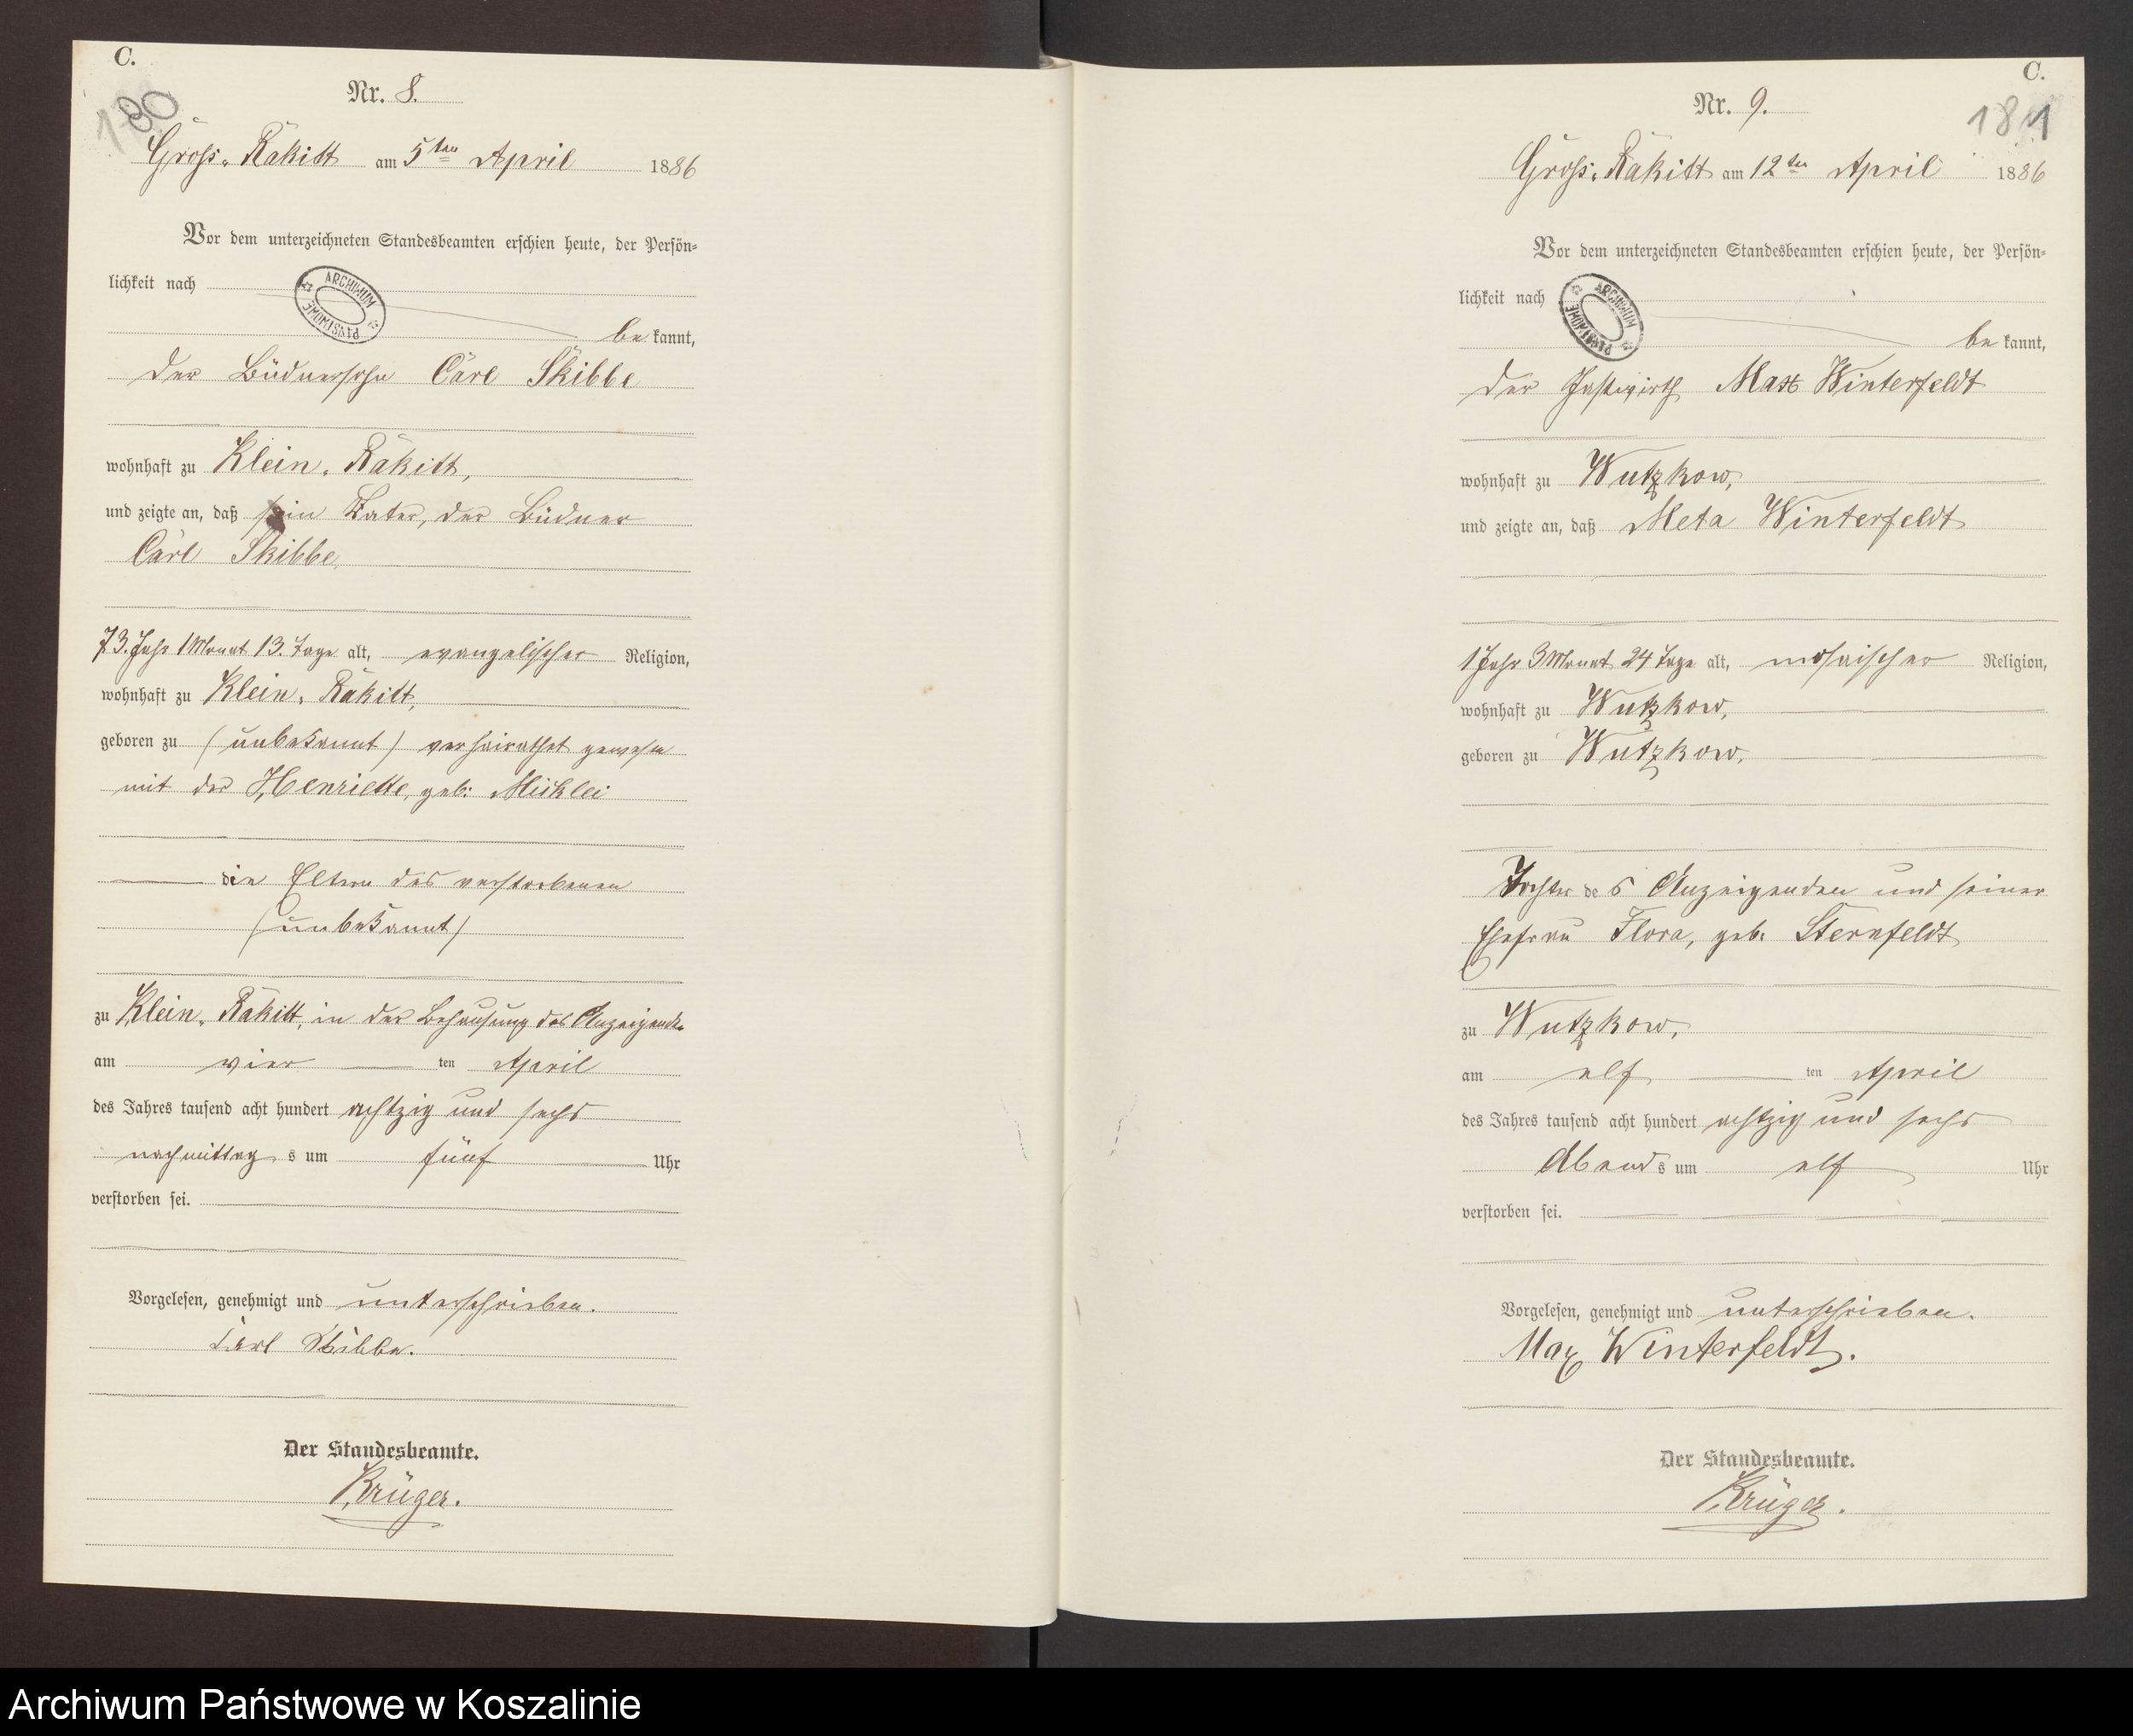 C.
180
Nr. 8.
Gross-Rakitt am 5ten April 1886
Vor dem unterzeichneten Standesbeamten erschien heute, der Persön-
lichkeit nach
ARCHIWUM PAŃSTWOWE
be kannt,
der Büdnersohn Carl Skibbe
wohnhaft zu Klein-Rakitt,
und zeigte an, daß sein Vater, der Büdner
Carl Skibbe,
73. Jahr 1 Monat 13. Tage alt, evangelischer Religion,
wohnhaft zu Klein-Rakitt,
geboren zu (unbekannt) verheirathet gewesen
mit der Henriette, geb:
die Eltern des verstorbenen
(unbekannt)
zu Klein-Rakitt, in der Behausung des Anzeigenden
am vier ten April
des Jahres tausend acht hundert achtzig und sechs
nachmittag s um fünf Uhr
verstorben sei.
Vorgelesen, genehmigt und unterschrieben.
Carl Skibbe.
Der Standesbeamte.
Krüger.
C.
181
Nr. 9.
Gross-Rakitt am 12ten April 1886
Vor dem unterzeichneten Standesbeamten erschien heute, der Persön-
lichkeit nach
ARCHIWUM PAŃSTWOWE
be kannt,
der Gastwirth Max Winterfeldt
wohnhaft zu Wutzkow,
und zeigte an, daß Meta Winterfeldt
1 Jahr 3 Monat 24 Tage alt, mosaischer Religion,
wohnhaft zu Wutzkow,
geboren zu Wutzkow,
Tochter de s Anzeigenden und seiner
Ehefrau Flora, geb: Sternfeldt
zu Wutzkow,
am elf ten April
des Jahres tausend acht hundert achtzig und sechs
Abend s um elf Uhr
verstorben sei.
Vorgelesen, genehmigt und unterschrieben.
Max Winterfeldt.
Der Standesbeamte.
Krüger.
Archiwum Państwowe w Koszalinie